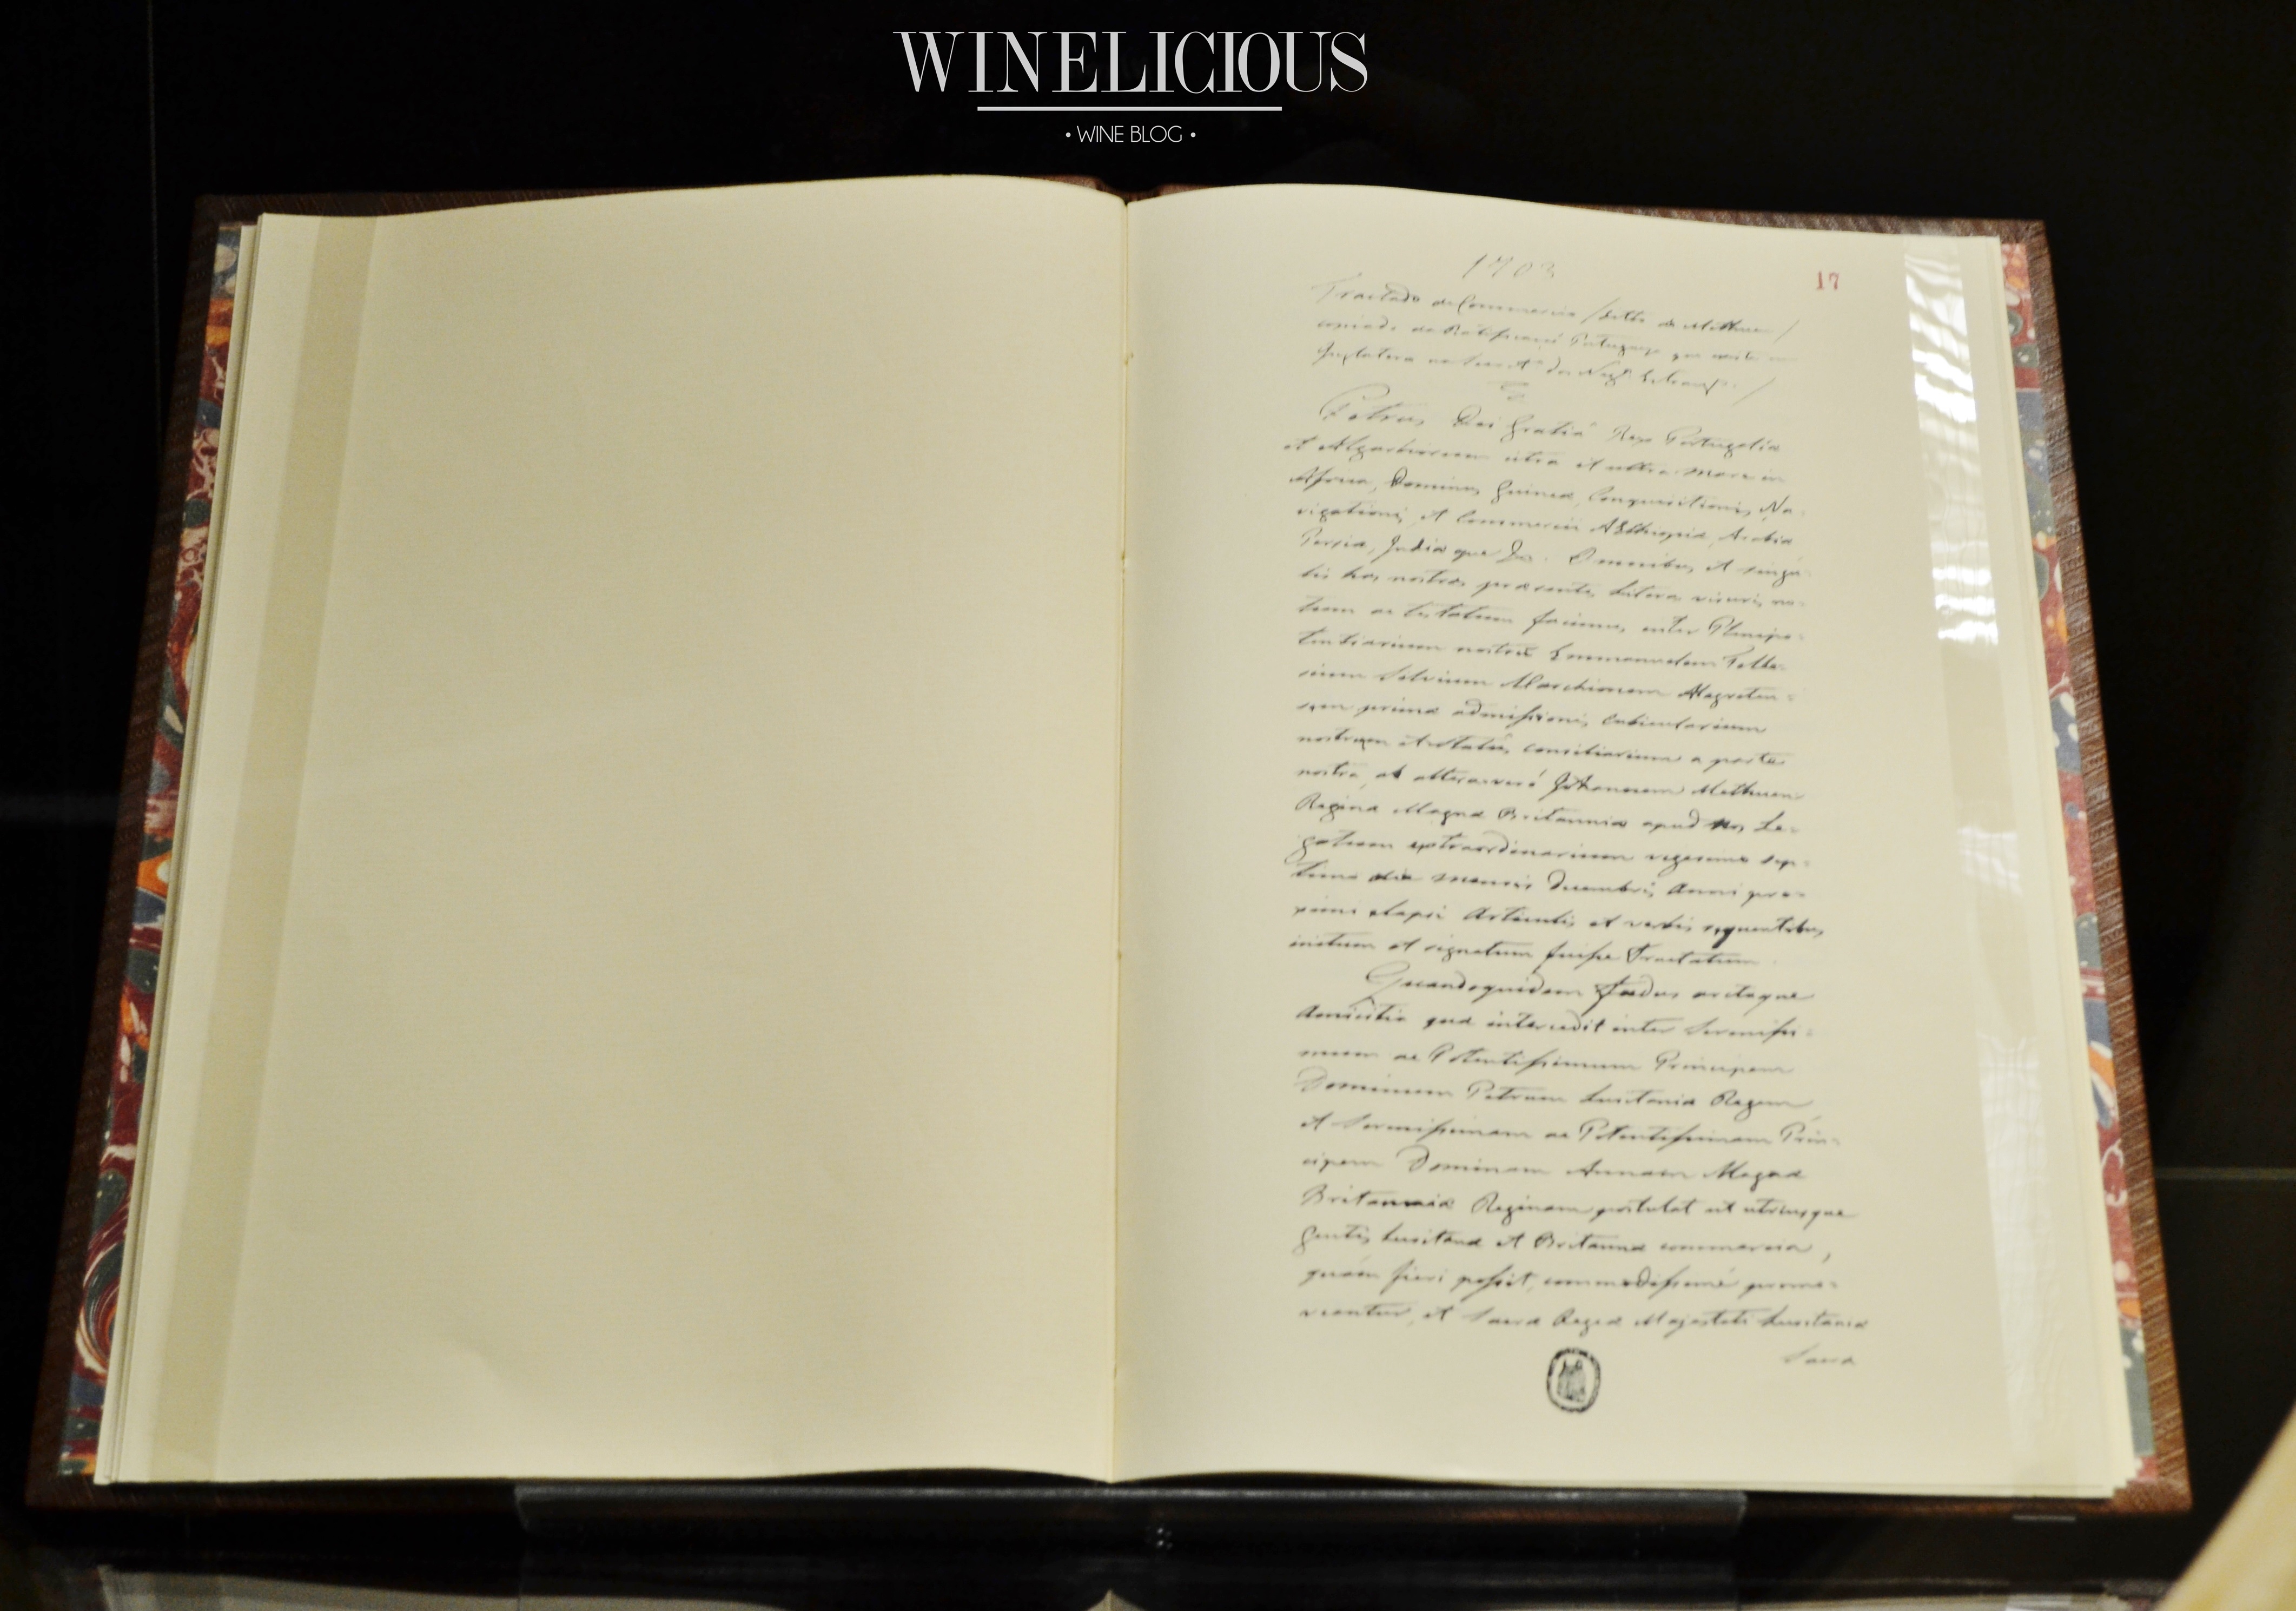 WINELICIOUS
• WINE BLOG •
1703
17
Tractado de Commercio / dello de Methuen /
copiado da Ratificacao Portugueza que existe na
Inglaterra na dos Neg. Estrang. /
Petrus Dei Gratia Rex Portugaliæ
et Algarbiorum citra et ultra mare in
Africa, Dominus Guineæ, Conquisitionis, Na-
vigationis, et Commercii Æthiopiæ, Arabiæ
Persiæ, Indiæque &a. Omnibus et singu-
lis has nostras præsentes litteras visuris no-
tum ac testatum facimus, inter Plenipo-
tentiarium nostrũ Emmanuelem Telle-
sium Silvium Marchionem Alegreten-
sem primæ admissionis Cubicularium
nostrum et status consiliarium a parte
nostra, ab altera verò Johannem Methuen
Reginæ Magnæ Britanniæ apud nos Le-
gatum extraordinarium vigesimo sep-
timo die mensis Decembris Anni pro-
ximi elapsi Articulis et verbis sequentibus
initum et signatum fuisse Tractatum.
Quandoquidem fœdus arctaque
Amicitia quæ intercedit inter Serenissi-
mum ac Potentissimum Principem
Dominum Petrum Lusitaniæ Regem
et Serenissimam ac Potentissimam Prin-
cipem Dominam Annam Magnæ
Britanniæ Reginam postulat ut utriusque
Gentis Lusitanæ et Britannæ commercia,
quàm fieri possit, commodissimè promo-
veantur, et Sacræ Regiæ Majestati Lusitaniæ
Sacra